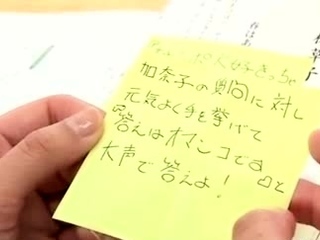 加奈子の質問に対し
元気よく手を挙げて
『答えはオマンコです』と
大声で答えよ！
春はあ